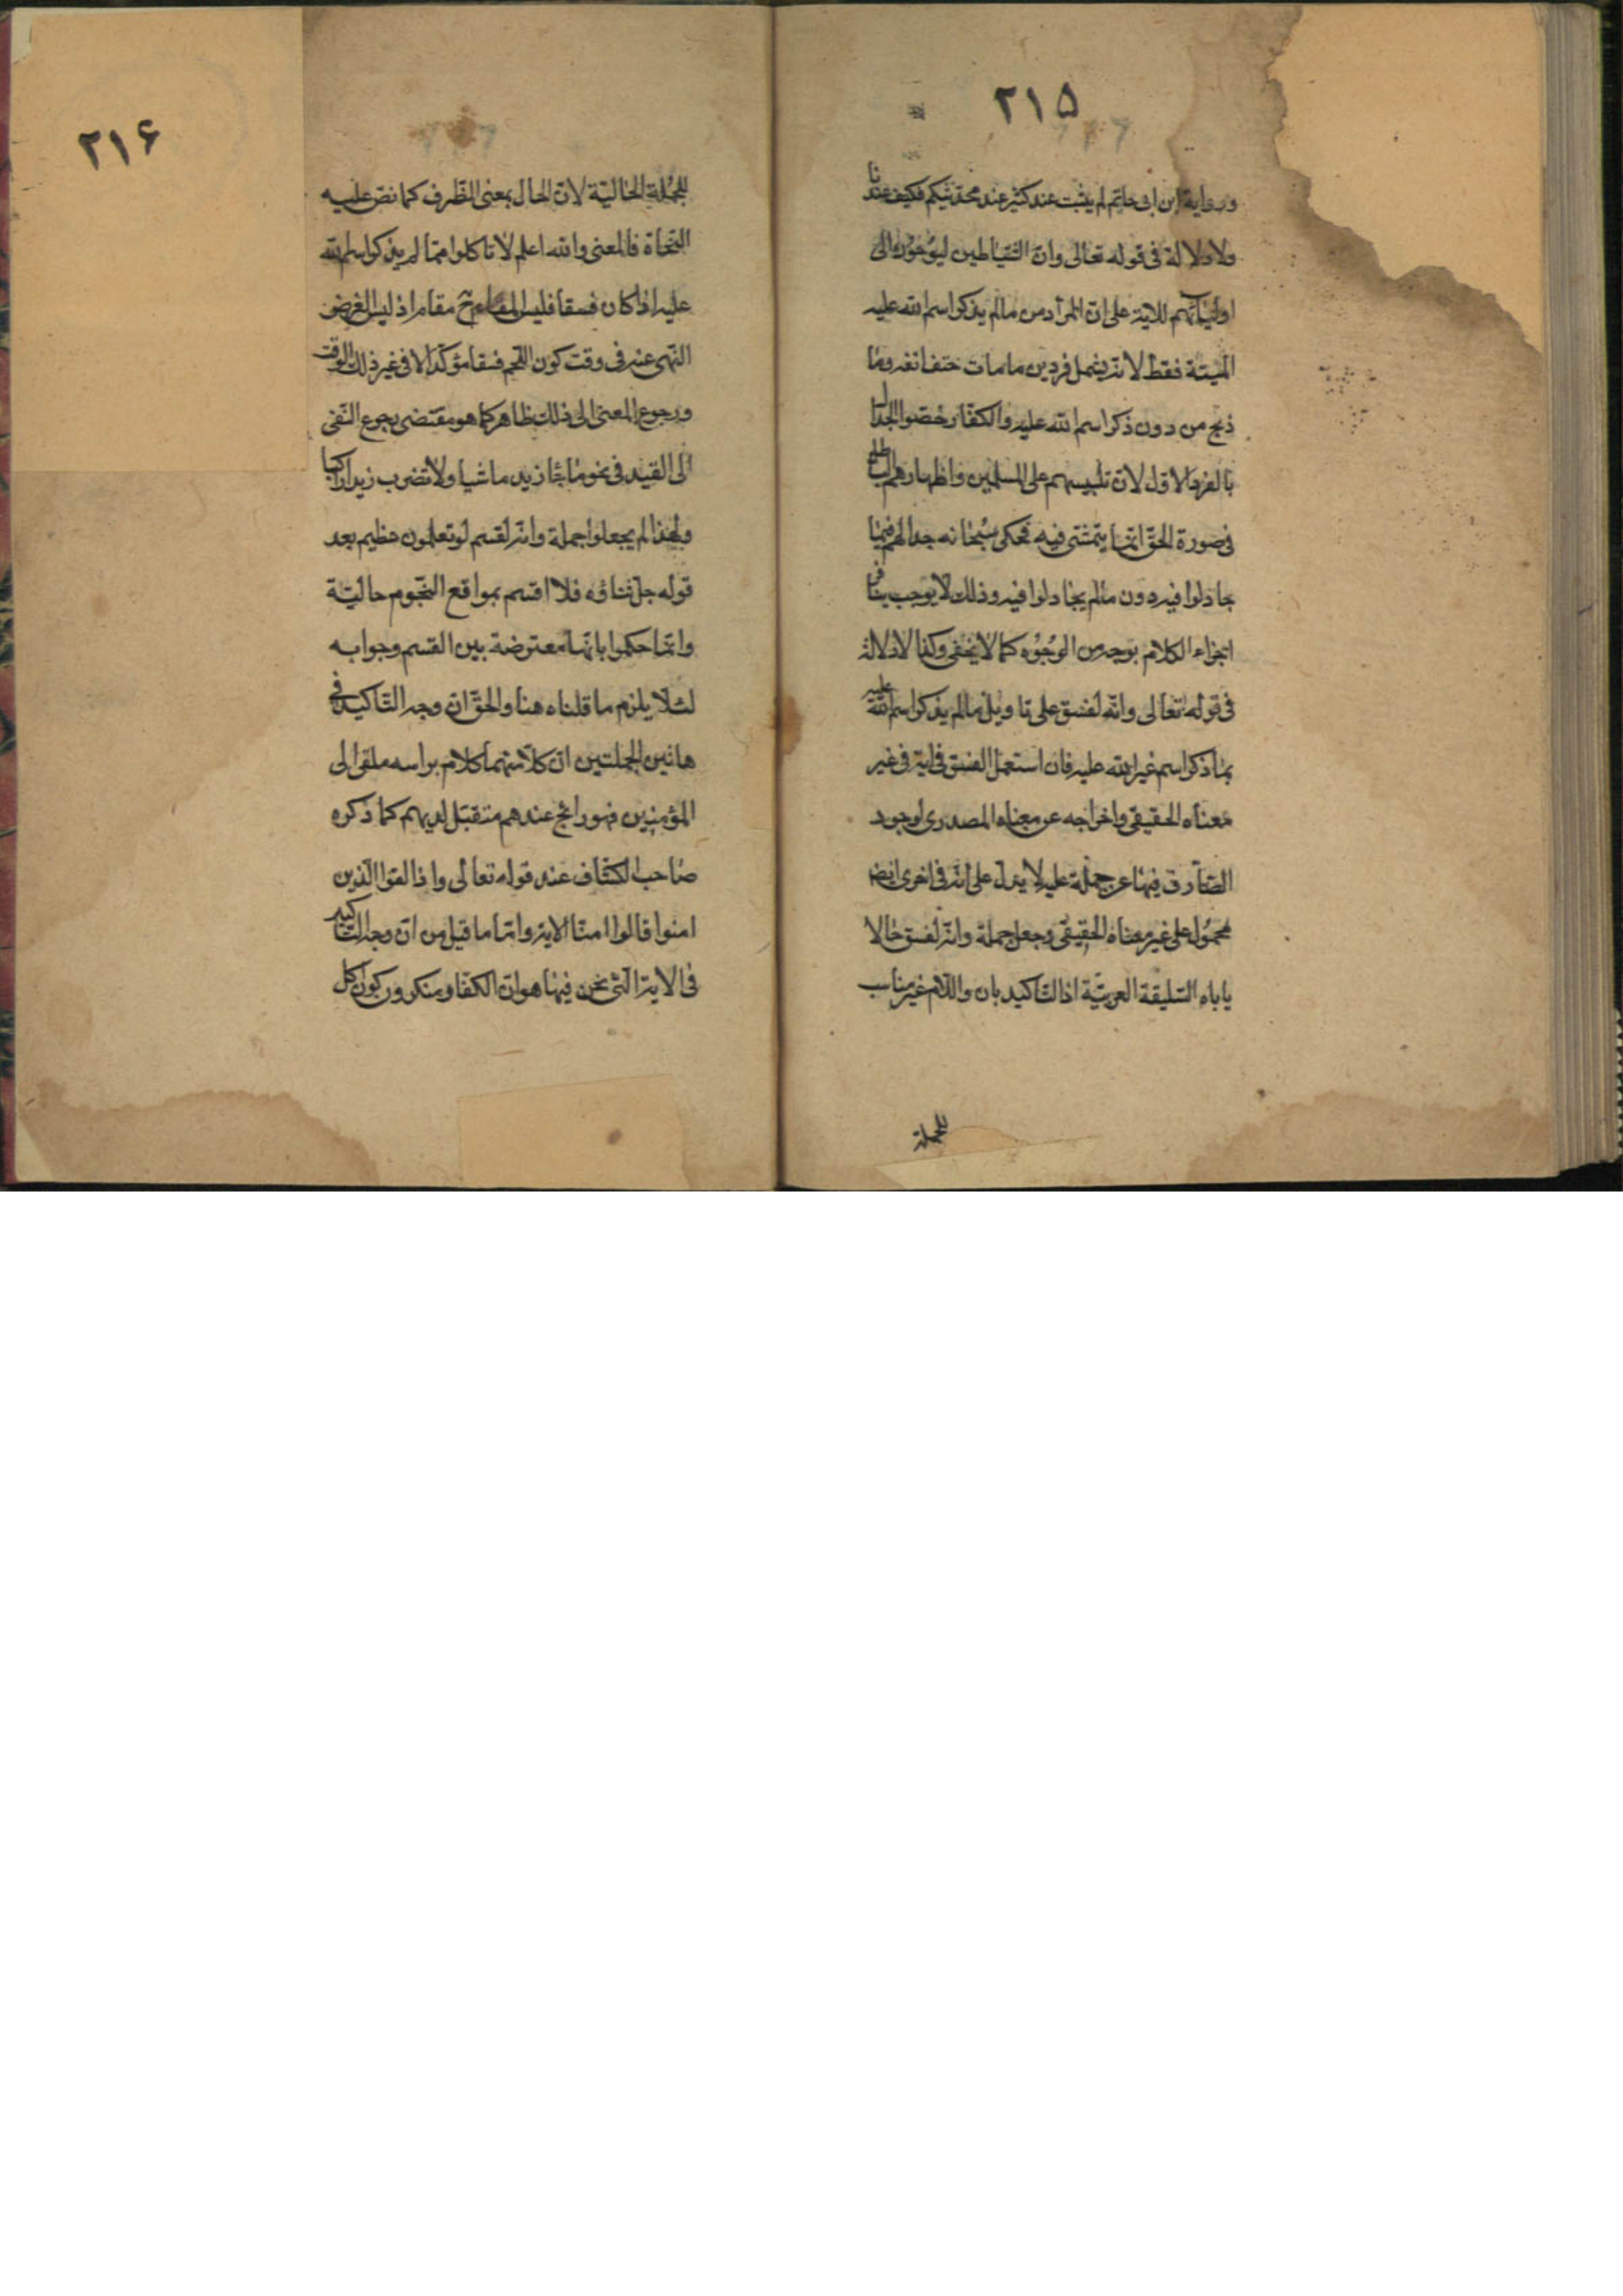 ٢١٥
ورواية ابن ابى حاتم لم يثبت عند كثير عند محدثيكم فكيف عندنا
ولا دلالة فى قوله تعالى وان الشياطين ليوحون الى
اوليائهم للاية على ان المراد من مالم يذكر اسم الله عليه
الميتة فقط لانه يشمل فردين ما مات حتف انفه وما
ذبح من دون ذكر اسم الله عليه والكفار خصوا الجدال
بالفرد الاول لان تلبيسهم على المسلمين واظهارهم الباطل
فى صورة الحق انما يتمشى فيه فحكى سبحانه جدالهم فيما
جادلوا فيه دون مالم يجادلوا فيه وذلك لا يوجب تنافر
اجزاء الكلام بوجه من الوجوه كما لا يخفى وكذا لا دلالة
فى قوله تعالى وانه لفسق على تاويل مالم يذكر اسم الله عليه
بما ذكر اسم غير الله عليه فان استعمل الفسق فى اية فى غير
معناه الحقيقى واخراجه عن معناه المصدرى لوجود
الصارف فيها عن حمله عليه لا يدل على انه فى اخرى ايضا
محمول على غير معناه الحقيقى وجعل جملة وانه لفسق حالا
ياباه السليقة العربية اذ التاكيد بان واللام غير مناسب
للجملة
٢١۶
للجملة الحالية لان الحال بمعنى الظرف كما نص عليه
النحاة فالمعنى والله اعلم لا تاكلوا مما لم يذكر اسم الله
عليه اذا كان فسقا فليس المقام ح مقام اذ ليس الغرض
النهى عنه فى وقت كون اللحم فسقا مؤكدا لا فى غير ذلك الوقت
ورجوع المعنى الى ذلك ظاهر كما هو مقتضى رجوع النفى
الى القيد فى نحو ما جاء زيد ماشيا ولا تضرب زيدا راكبا
ولهذا لم يجعلوا جملة وانه لقسم لو تعلمون عظيم بعد
قوله جل ثناؤه فلا اقسم بمواقع النجوم حالية
وانما حكموا بانها معترضة بين القسم وجوابه
لئلا يلزم ما قلناه هنا والحق ان وجه التاكيد فى
هاتين الجملتين ان كلا منهما كلام براسه ملقى الى
المؤمنين فهو رائج عندهم متقبل لديهم كما ذكره
صاحب الكشاف عند قوله تعالى واذا لقوا الذين
امنوا قالوا امنا الاية واما ما قيل من ان وجه التاكيد
فى الاية التى نحن فيها هو ان الكفار منكرون كون اكل